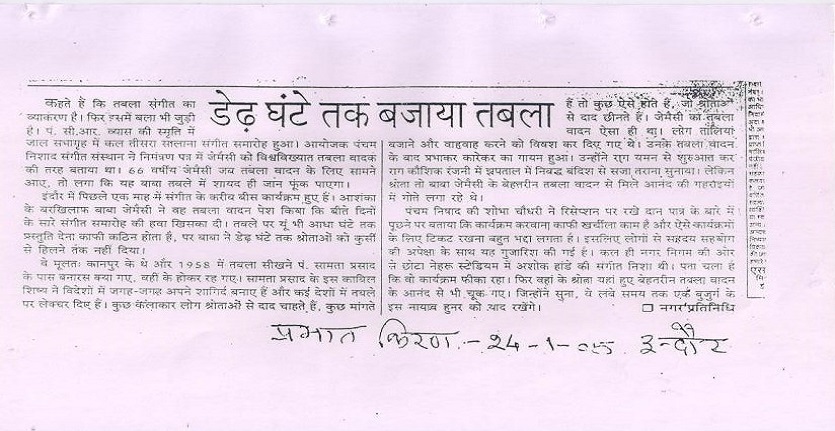 डेढ़ घंटे तक बजाया तबला
कहते हैं कि तबला संगीत का
व्याकरण है। फिर इसमें बला भी जुड़ी
है। पं. सी.आर. व्यास की स्मृति में
जाल सभागृह में कल तीसरा सतलाना संगीत समारोह हुआ। आयोजक पंचम
निशाद संगीत संस्थान ने निमंत्रण पत्र में जेमैसी को विश्वविख्यात तबला वादक
की तरह बताया था। 66 वर्षीय जेमैसी जब तबला वादन के लिए सामने
आए, तो लगा कि यह बाबा तबले में शायद ही जान फूंक पाएगा।
इंदौर में पिछले एक माह में संगीत के करीब बीस कार्यक्रम हुए हैं। आशंका
के बरखिलाफ बाबा जेमैसी ने वह तबला वादन पेश किया कि बीते दिनों
के सारे संगीत समारोह की हवा खिसका दी। तबले पर यूं भी आधा घंटे तक
प्रस्तुति देना काफी कठिन होता है, पर बाबा ने डेढ़ घंटे तक श्रोताओं को कुर्सी
से हिलने तक नहीं दिया।
वे मूलतः कानपुर के थे और 1958 में तबला सीखने पं. सामता प्रसाद
के पास बनारस क्या गए, वहीं के होकर रह गए। सामता प्रसाद के इस काबिल
शिष्य ने विदेशों में जगह-जगह अपने शागिर्द बनाए हैं और कई देशों में तबले
पर लेक्चर दिए हैं। कुछ कलाकार लोग श्रोताओं से दाद चाहते हैं, कुछ मांगते
हैं तो कुछ ऐसे होते हैं, जो श्रोताओं
से दाद छीनते हैं। जेमैसी का तबला
वादन ऐसा ही था। लोग तालियां
बजाने और वाहवाह करने को विवश कर दिए गए थे। उनके तबला वादन
के बाद प्रभाकर कारेकर का गायन हुआ। उन्होंने राग यमन से शुरुआत कर
राग कौशिक रंजनी में झपताल में निबद्ध बंदिश से सजा तराना सुनाया। लेकिन
श्रोता तो बाबा जेमैसी के बेहतरीन तबला वादन से मिले आनंद की गहराइयों
में गोते लगा रहे थे।
पंचम निषाद की शोभा चौधरी ने रिसेप्शन पर रखे दान पात्र के बारे में
पूछने पर बताया कि कार्यक्रम करवाना काफी खर्चीला काम है और ऐसे कार्यक्रमों
के लिए टिकट रखना बहुत भद्दा लगता है। इसलिए लोगों से सहृदय सहयोग
की अपेक्षा के साथ यह गुजारिश की गई है। कल ही नगर निगम की ओर
से छोटा नेहरू स्टेडियम में अशोक हांडे की संगीत निशा थी। पता चला है
कि वो कार्यक्रम फीका रहा। फिर वहां के श्रोता यहां हुए बेहतरीन तबला वादन
के आनंद से भी चूक गए। जिन्होंने सुना, वे लंबे समय तक एक बुजुर्ग के
इस नायाब हुनर को याद रखेंगे।
□ नगर प्रतिनिधि
प्रभात किरण - 24-1-05 इन्दौर